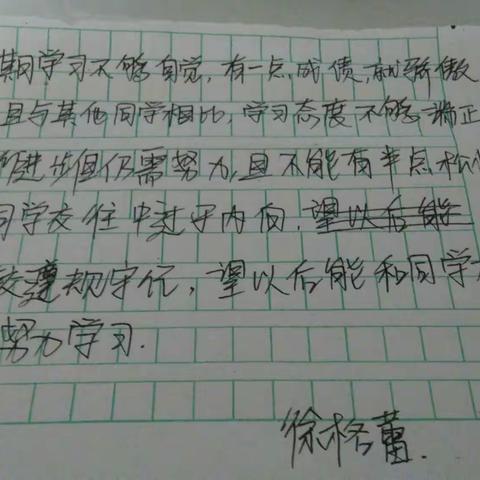 期间学习不够自觉,有一点成绩,就骄傲
且与其他同学相比,学习态度不够端正
进步但仍需努力,且不能有半点松
同学交往中过于内向.望以后能
校遵规守纪,望以后能和同学
努力学习.
徐格蕾.